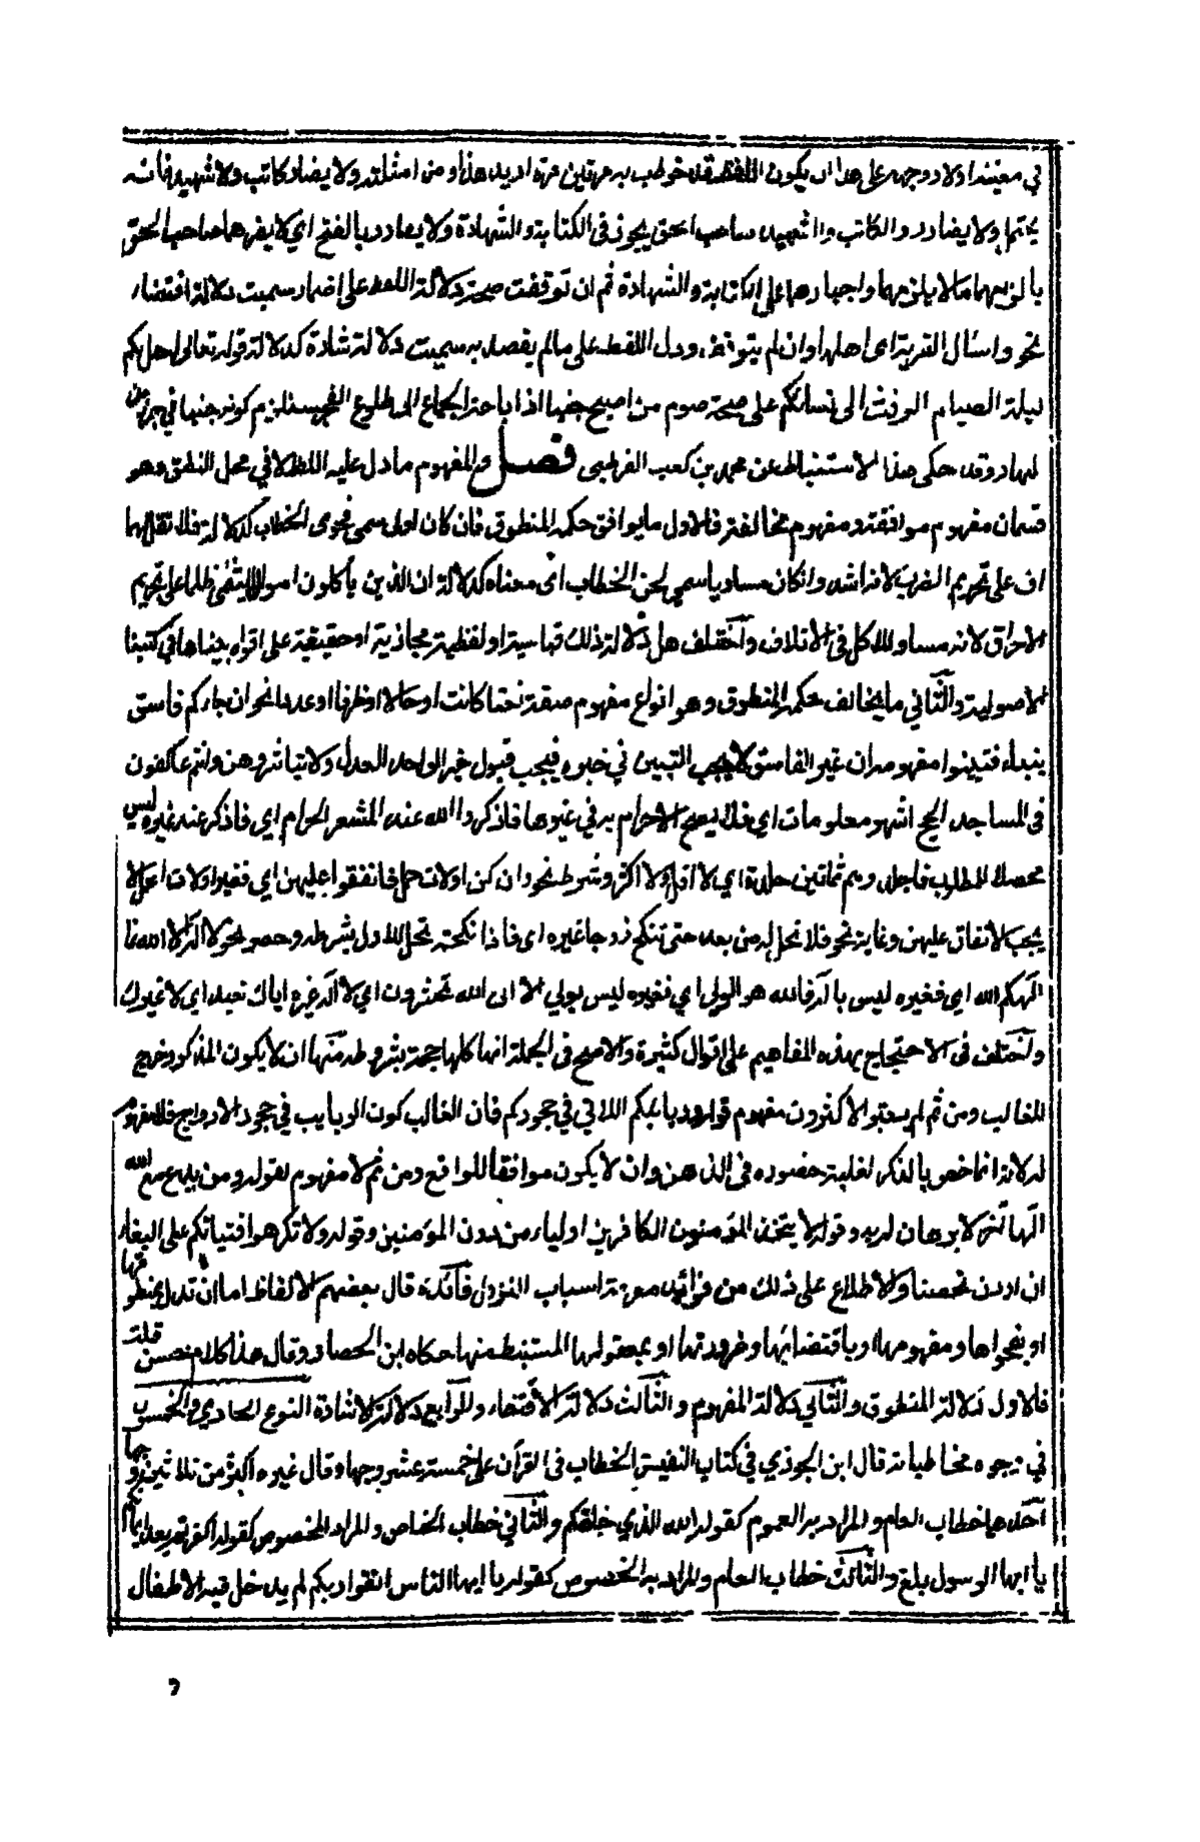 في معنييه اولا ووجهه على هذا ان يكون اللفظ قد خوطب به مرتين مرة اريد هذا ومن امثلته ولا يضار كاتب ولا شهيد فانه
يحتمل ولا يضارر والكاتب والشهيد صاحب الحق بجور في الكتابة والشهادة ولا يضارر بالفتح اي لا يضرهما صاحب الحق
بالزامهما مالا يلزمهما واجبارهما على الكتابة والشهادة ثم ان توقفت صحة دلالة اللفظ على اضمار سميت دلالة اقتضاء
نحو واسأل القرية اي اهلها وان لم يتوقف ودل اللفظ على مالم يقصد به سميت دلالة اشارة كدلالة قوله تعالى احل لكم
ليلة الصيام الرفث الى نسائكم على صحة صوم من اصبح جنبا اذ اباحة الجماع الى طلوع الفجر يستلزم كونه جنبا في جزء من
النهار وقد حكى هذا الاستنباط عن محمد بن كعب القرظي فصل والمفهوم مادل عليه اللفظ لا في محل النطق وهو
قسمان مفهوم موافقة ومفهوم مخالفة فالاول مايوافق حكمه المنطوق فان كان اولى سمي فحوى الخطاب كدلالة فلا تقل لهما
اف على تحريم الضرب لانه اشد وان كان مساويا سمي لحن الخطاب اي معناه كدلالة ان الذين ياكلون اموال اليتمى ظلما على تحريم
الاحراق لانه مساو للاكل في الاتلاف واختلف هل دلالة ذلك قياسية او لفظية مجازية او حقيقية على اقوال بيناها في كتبنا
الاصولية والثاني مايخالف حكمه المنطوق وهو انواع مفهوم صفة نعتا كانت او حالا او ظرفا او عددا نحو ان جاءكم فاسق
بنباء فتبينوا مفهومه ان غير الفاسق لا يجب التبين في خبره فيجب قبول خبر الواحد العدل ولا تباشروهن وانتم عاكفون
في المساجد الحج اشهر معلومات اي فلا يصح الاحرام به في غيرها فاذكروا الله عند المشعر الحرام اي فاذكر عند غيره ليس
محصلا للمطلوب فاجلدوهم ثمانين جلدة اي لا اقل ولا اكثر وشرط نحو وان كن اولات حمل فانفقوا عليهن اي فغير اولات الحمل لا
يجب الانفاق عليهن وغاية نحو فلا تحل له من بعد حتى تنكح زوجا غيره اي فاذا نكحته تحل للاول بشرطه وحصر نحو لا اله الا الله انما
الهكم الله اي فغيره ليس باله فالله هو الولي اي فغيره ليس بولي لا الى الله تحشرون اي لا الى غيره اياك نعبد اي لا غيرك
واختلف في الاحتجاج بهذه المفاهيم على اقوال كثيرة والاصح في الجملة انها كلها حجة بشروط منها ان لا يكون المذكور خرج
للغالب ومن ثم لم يعتبر الاكثرون مفهوم قوله وربائبكم اللاتي في حجوركم فان الغالب كون الربايب في حجور الازواج فلا مفهوم
له لانه انما خص بالذكر لغلبة حضوره في الذهن وان لا يكون موافقا للواقع ومن ثم لا مفهوم لقوله ومن يدع مع الله
الها آخر لا برهان له به وقوله لا يتخذ المؤمنون الكافرين اولياء من دون المؤمنين وقوله ولا تكرهوا فتياتكم على البغاء
ان اردن تحصنا والاطلاع على ذلك من فوائد معرفة اسباب النزول فائدة قال بعضهم الالفاظ اما ان تدل بمنطوقها
او بفحواها ومفهومها او باقتضائها وضرورتها او بمعقولها المستنبط منها حكاه ابن الحصار وقال هذا كلام حسن قلت
فالاول دلالة المنطوق والثاني دلالة المفهوم والثالث دلالة الاقتضاء والرابع دلالة الاشارة النوع الحادي والخمسون
في وجوه مخاطباته قال ابن الجوزي في كتاب النفيس الخطاب في القرآن على خمسة عشر وجها وقال غيره اكثر من ثلاثين وجها
احدها خطاب العام والمراد به العموم كقوله الله الذي خلقكم والثاني خطاب الخاص والمراد الخصوص كقوله اكفرتم بعد ايمانكم
يا ايها الرسول بلغ والثالث خطاب العام والمراد به الخصوص كقوله يا ايها الناس اتقوا ربكم لم يدخل فيه الاطفال